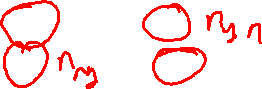 ny ny n